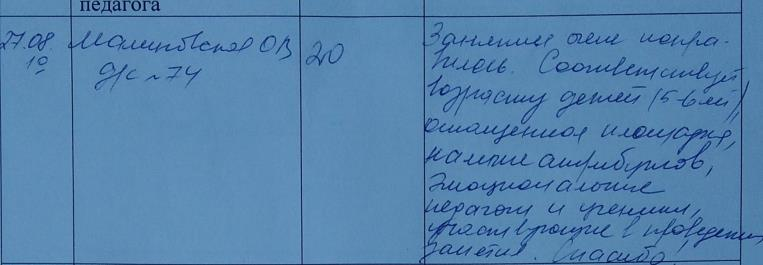 педагога
27.08. Малиновская ОВ 20 Занятия очень понра-
10 д/с №74 вилось. Соответствует
возрасту детей (5-6 лет),
оснащенная площадка,
наличие атрибутов,
эмоциональные
педагоги и ученики,
участвующие в проведении
занятия. Спасибо!